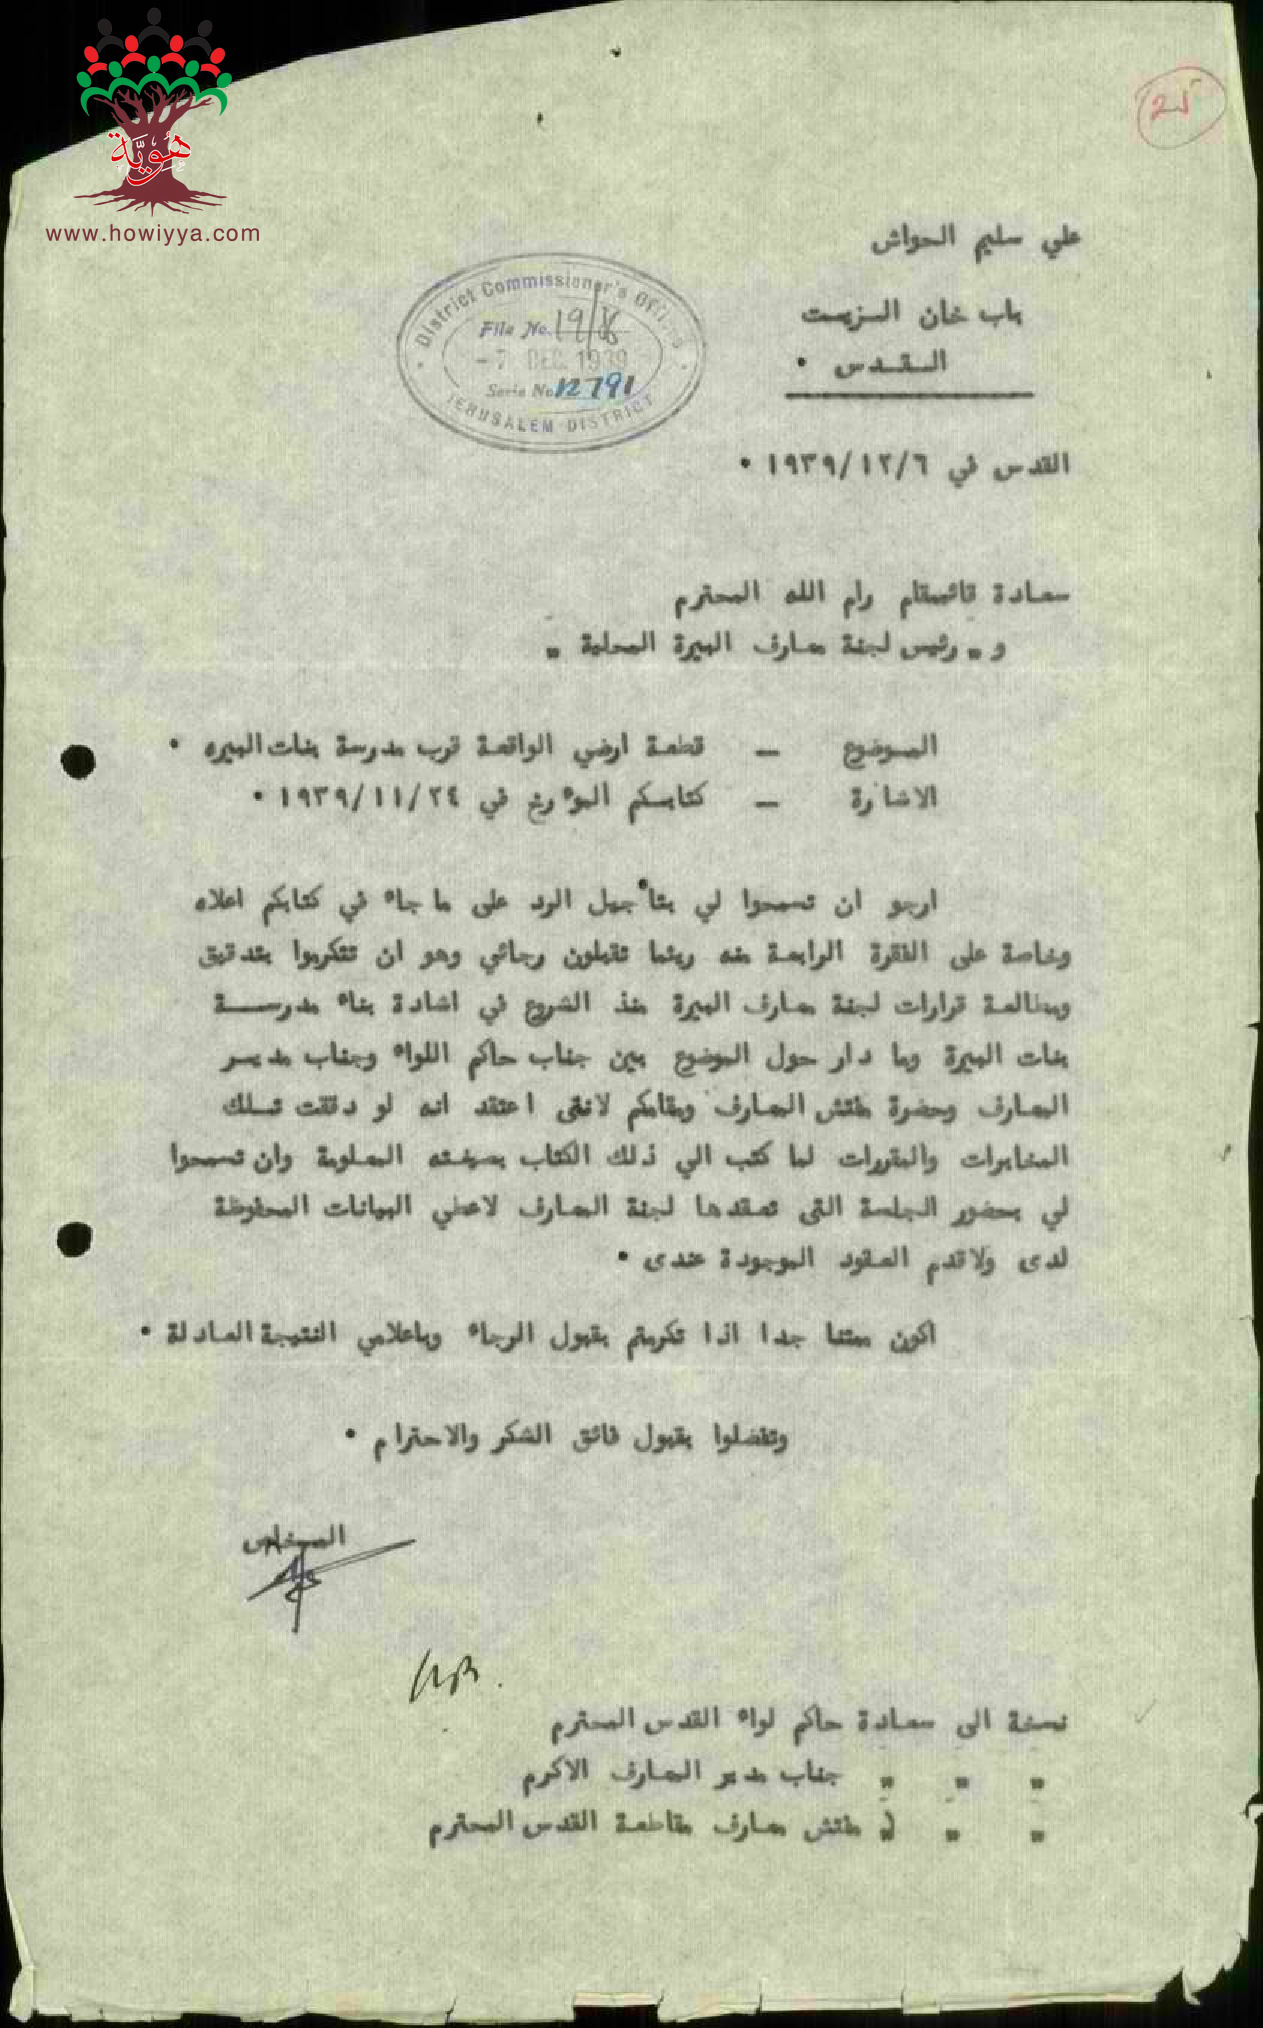 هُويَّة
www.howiyya.com
25
علي سليم الحواش
باب خان الزيت
القدس .
District Commissioner's Offices
File No. 19/8
-7 DEC. 1939
Serie No. 12791
JERUSALEM DISTRICT
القدس في ١٩٣٩/١٢/٦ .
سعادة قائمقام رام الله المحترم
و " رئيس لجنة معارف البيرة المحلية "
الموضوع — قطعة ارضي الواقعة قرب مدرسة بنات البيره .
الاشارة — كتابكم المؤرخ في ١٩٣٩/١١/٢٤ .
ارجو ان تسمحوا لي بتأجيل الرد على ما جاء في كتابكم اعلاه
وخاصة على الفقرة الرابعة منه ريثما تقبلون رجائي وهو ان تتكرموا بتدقيق
ومطالعة قرارات لجنة معارف البيرة منذ الشروع في اشادة بناء مدرســة
بنات البيرة وما دار حول الموضوع بين جناب حاكم اللواء وجناب مديــر
المعارف وحضرة مفتش المعارف ومقامكم لانني اعتقد انه لو دققت تــلك
المخابرات والمقررات لما كتب الي ذلك الكتاب بصيغته المعلومة وان تسمحوا
لي بحضور الجلسة التى تعقدها لجنة المعارف لاعطي البيانات المحفوظة
لدى ولاقدم العقود الموجودة عندى .
اكون ممتنا جدا اذا تكرمتم بقبول الرجاء وباعلامي النتيجة العادلة .
وتفضلوا بقبول فائق الشكر والاحترام .
المخلص
نسخة الى سعادة حاكم لواء القدس المحترم
" " " جناب مدير المعارف الاكرم
" " " مفتش معارف مقاطعة القدس المحترم